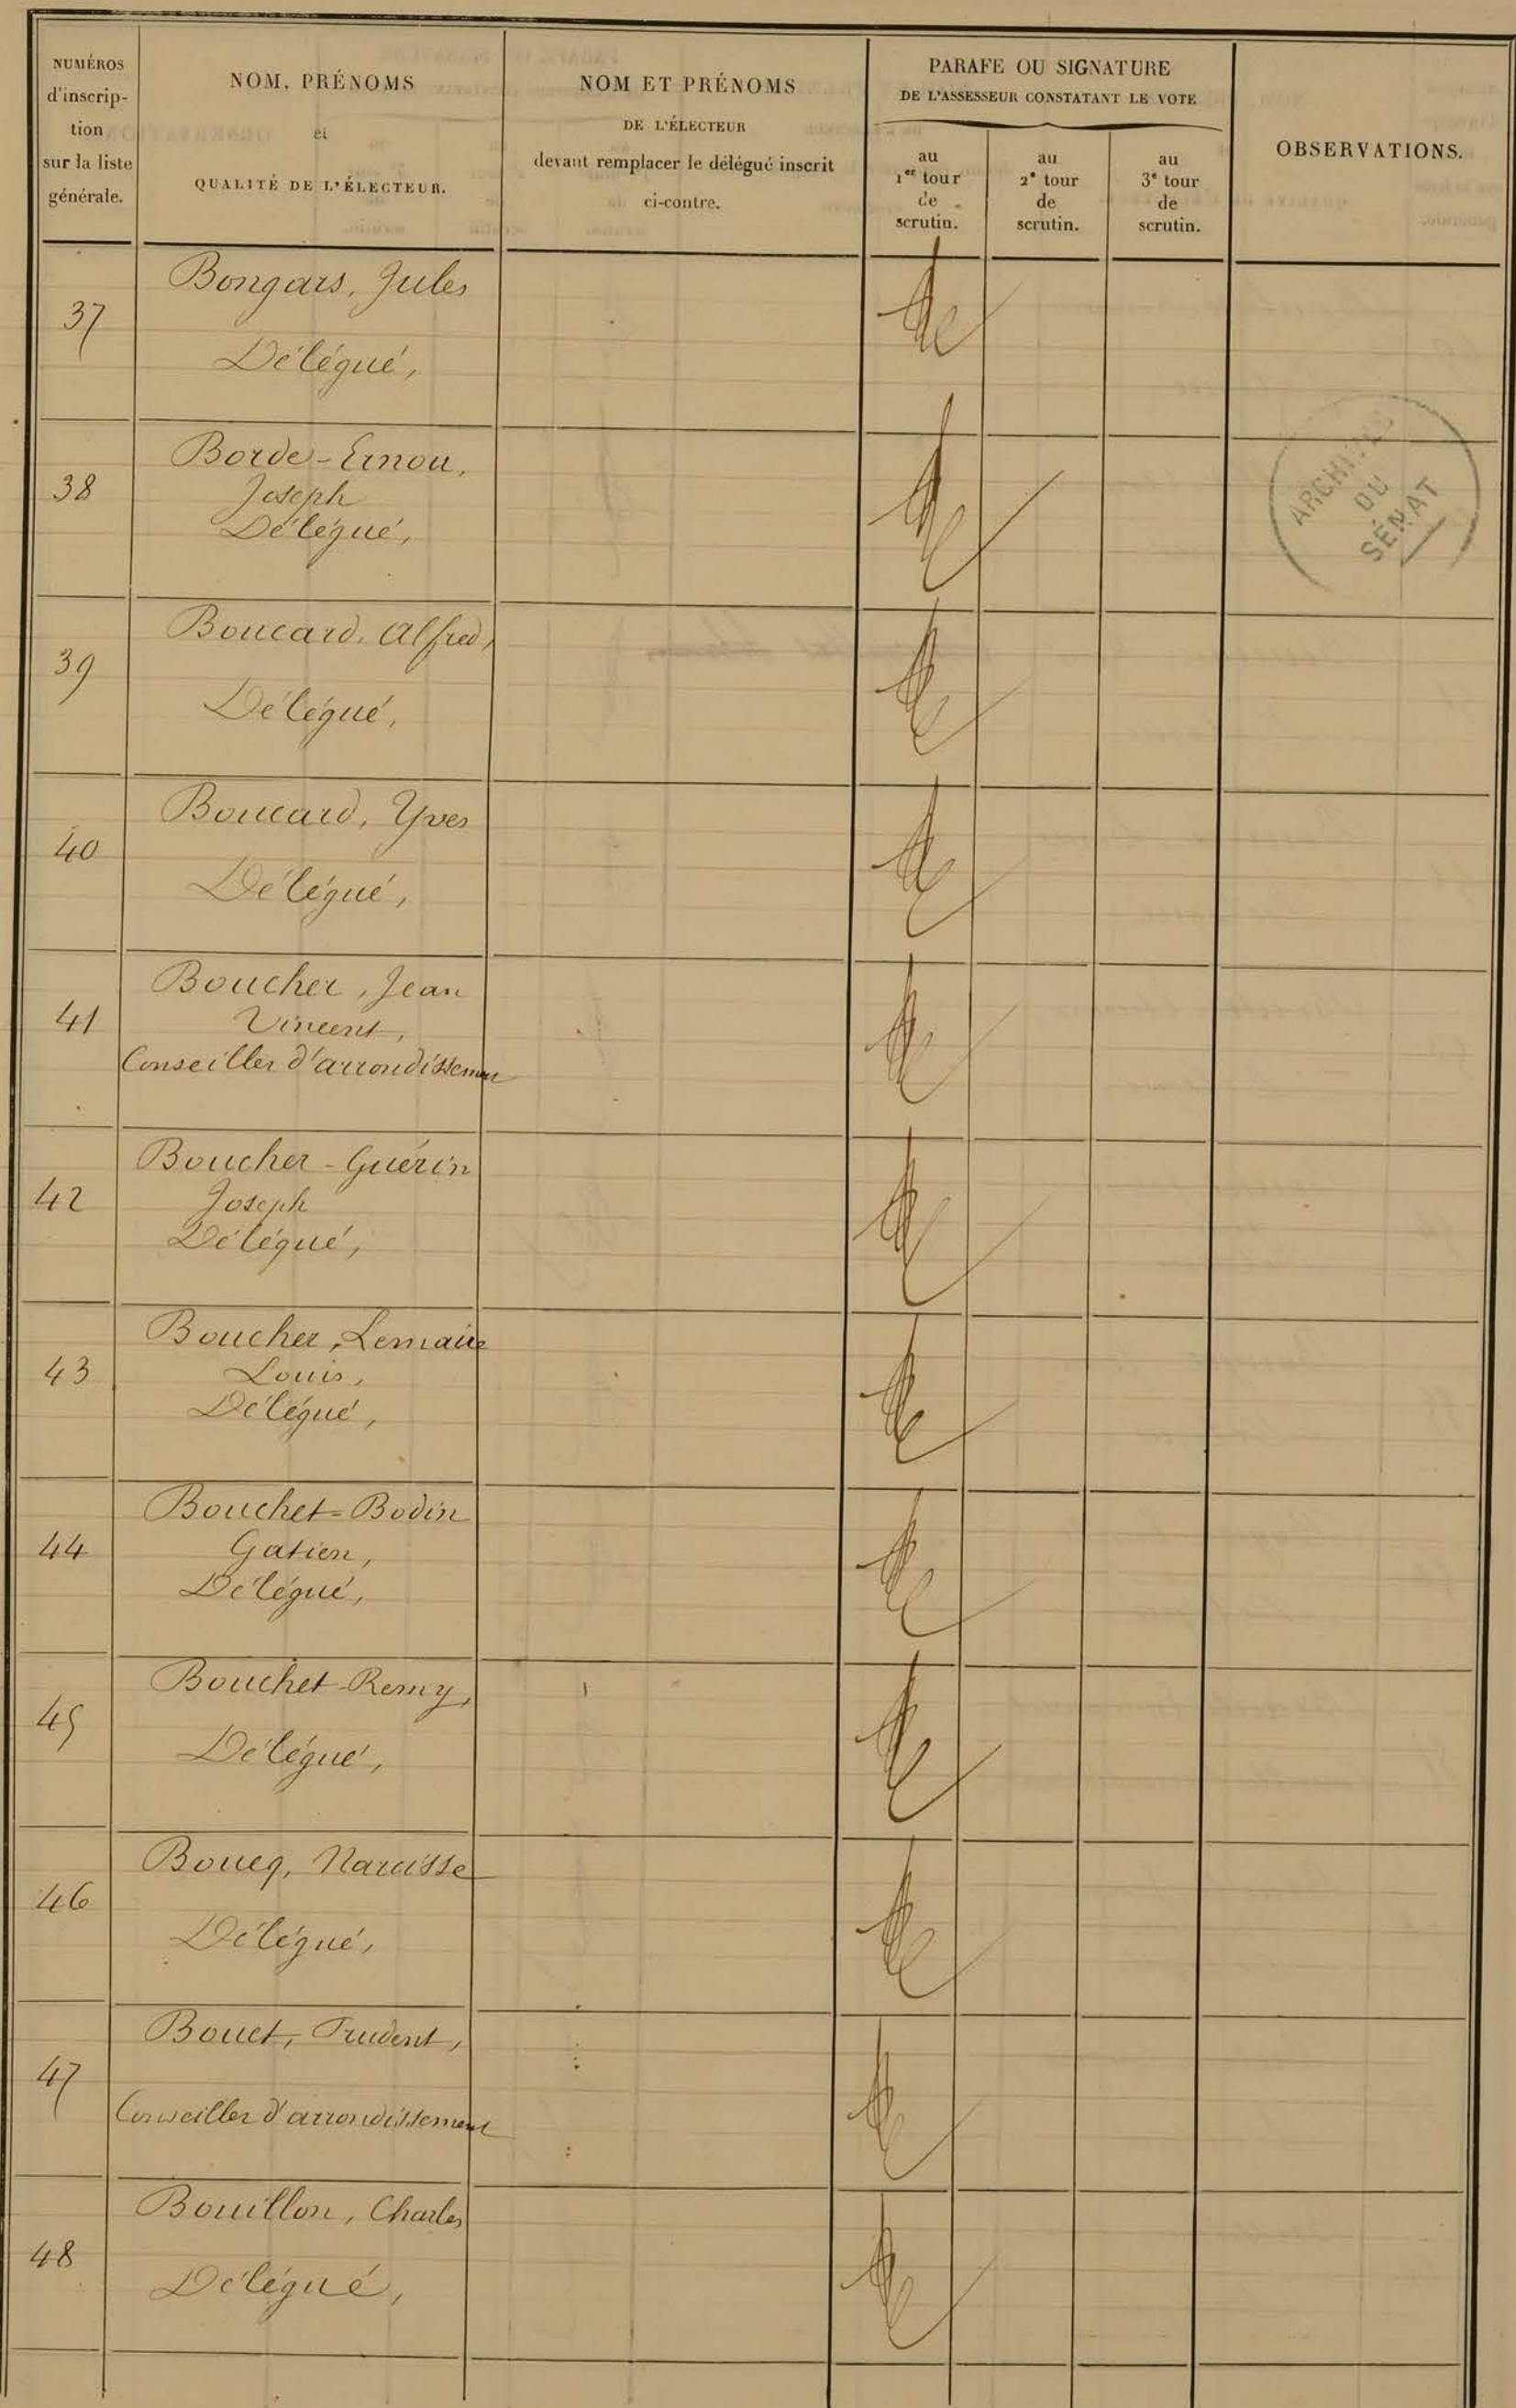 NUMÉROS
d'inscrip-
tion
sur la liste
générale.
NOM, PRÉNOMS
et
QUALITÉ DE L'ÉLECTEUR.
NOM ET PRÉNOMS
DE L'ÉLECTEUR
devant remplacer le délégué inscrit
ci-contre.
PARAFE OU SIGNATURE
DE L'ASSESSEUR CONSTATANT LE VOTE
au
1er tour
de
scrutin.
au
2e tour
de
scrutin.
au
3e tour
de
scrutin.
OBSERVATIONS.
Bongars, Jules
37
Délégué,
Borde-Ernou,
38
Joseph
Délégué,
ARCHIVES
DU
SÉNAT
Boucard, Alfred,
39
Délégué,
Boucard, Yves
40
Délégué,
Boucher, Jean
41
Vincent,
Conseiller d'arrondissement
Boucher-Guérin
42
Joseph
Délégué,
Boucher, Lemaire
43
Louis,
Délégué,
Bouchet=Bodin
44
Gatien,
Délégué,
Bouchet-Remy,
45
Délégué,
Boucq, Narcisse
46
Délégué,
Bouet, Prudent,
47
Conseiller d'arrondissement
Bouillon, Charles
48
Délégué,